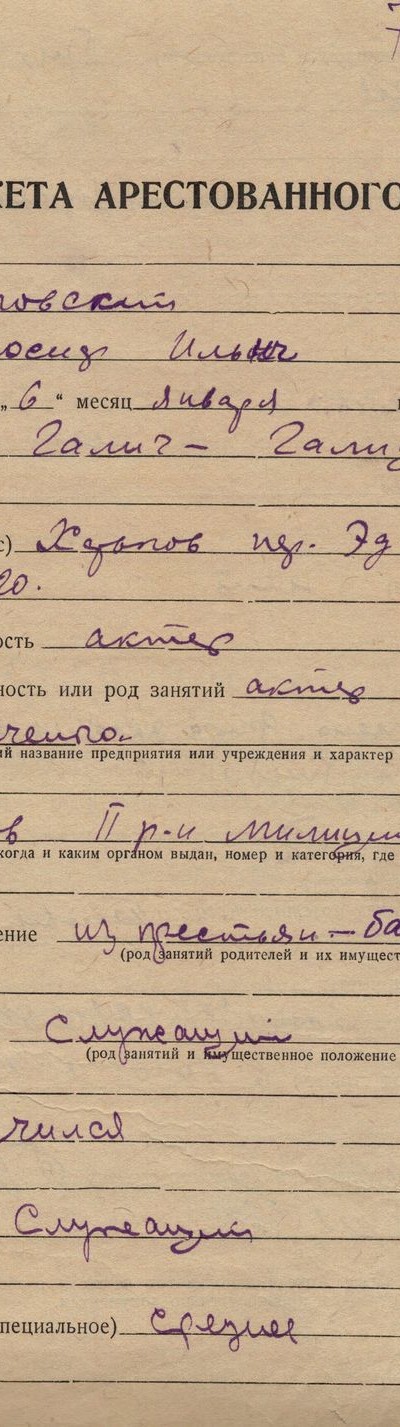 КЕТА АРЕСТОВАННОГО
говский
осид Ильич
„6“ месяц января
Галич — Галиц
с) Харьков пер. Эд
20.
ость актер
ность или род занятий актер
ченко.
ий название предприятия или учреждения и характер
в II р-н милиции
когда и каким органом выдан, номер и категория, где
ение из крестьян — ба
(род занятий родителей и их имущест
Служащий
(род занятий и имущественное положение
чился
Служащий
пециальное) среднее